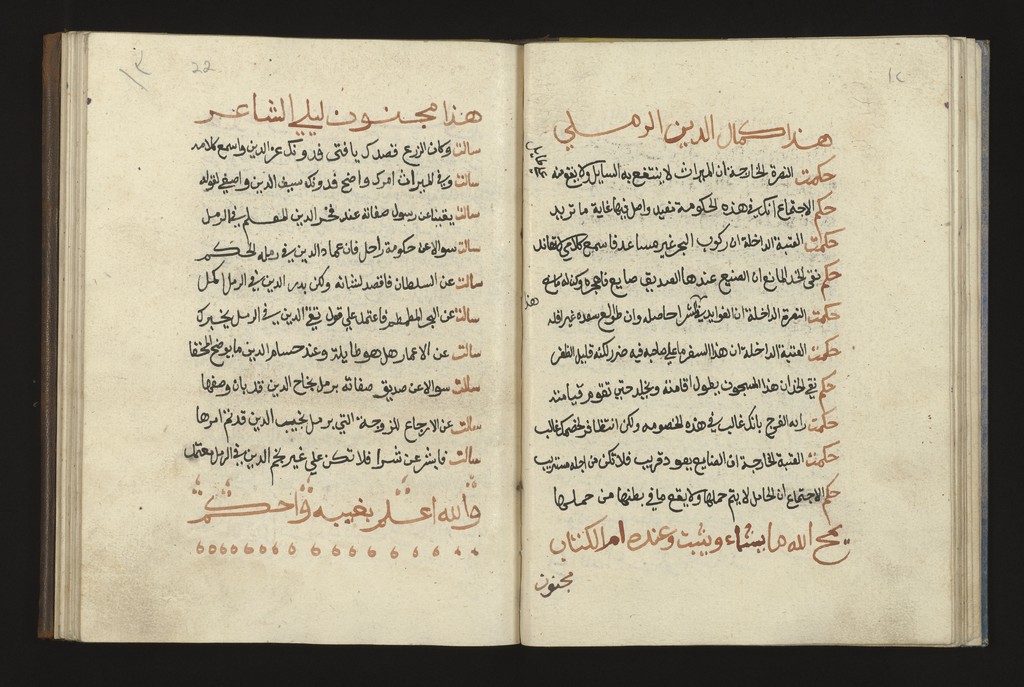 هذا كمال الدين الرملي
حكمت النصرة الخارجة ان الميراث لا ينتفع به السايل ولا يقع منه
حكم الاجتماع انك في هذه الحكومة تفيد واصل فيها غاية ما تريد
حكمت العتبة الداخلة ان ركوب البحر غير مساعد فاسمع كلامي
حكم نقي الخد الجامع ان الصنيع عندها الصديق صايع فاهجره وكن له مانع
حكمت النصرة الداخلة ان الفوايد حاصله وان طوالع سعده غير افله
حكمت العتبة الداخلة ان هذا السفر ما على صاحبه فيه ضرر لكنه قليل الظفر
حكم نقي الخد ان هذا المسجون يطول اقامته ويخلد حتى تقوم قيامته
حكمت راية الفرح بانك غالب في هذه الخصومه ولكن خصمك غالب
حكمت العتبة الخارجة ان الضايع يعود قريب فلا تكن من اجله مستريب
حكم الاجتماع ان الحامل لا يتم حملها ولا يقع ما في بطنها من حملها
يمح الله ما يشاء ويثبت وعنده ام الكتاب
مجنون
22
هذا مجنون ليلي الشاعر
سالت وكان الزرع قصدك يا فتى فدونك عز الدين واسمع كلامه
سالت وفي الميراث امرك واضح فدونك سيف الدين واصغي لقوله
سالت يقينا عن رسول صفاته عند فخر الدين المعلم في الرمل
سالت سوالا عن حكومة راحل فان عماد الدين في رمله الحكم
سالت عن السلطان فاقصد لشانه ولكن بدر الدين في الرمل اكمل
سالت عن فاعتمد على قول تقي الدين في الرمل يخبرك
سالت عن الاعمار هل هو طايلة وعند حسام الدين ما يوضح المخفا
سالت سوالا عن صديق صفاته برمل نجاح الدين قد بان وصفها
سالت عن الارجاع للزوجة التي برمل نجيب الدين قد تم امرها
سالت فابشر عن شرا فلا تكن على غير نجم الدين في الرمل معتمل
والله اعلم بغيبه واحكم